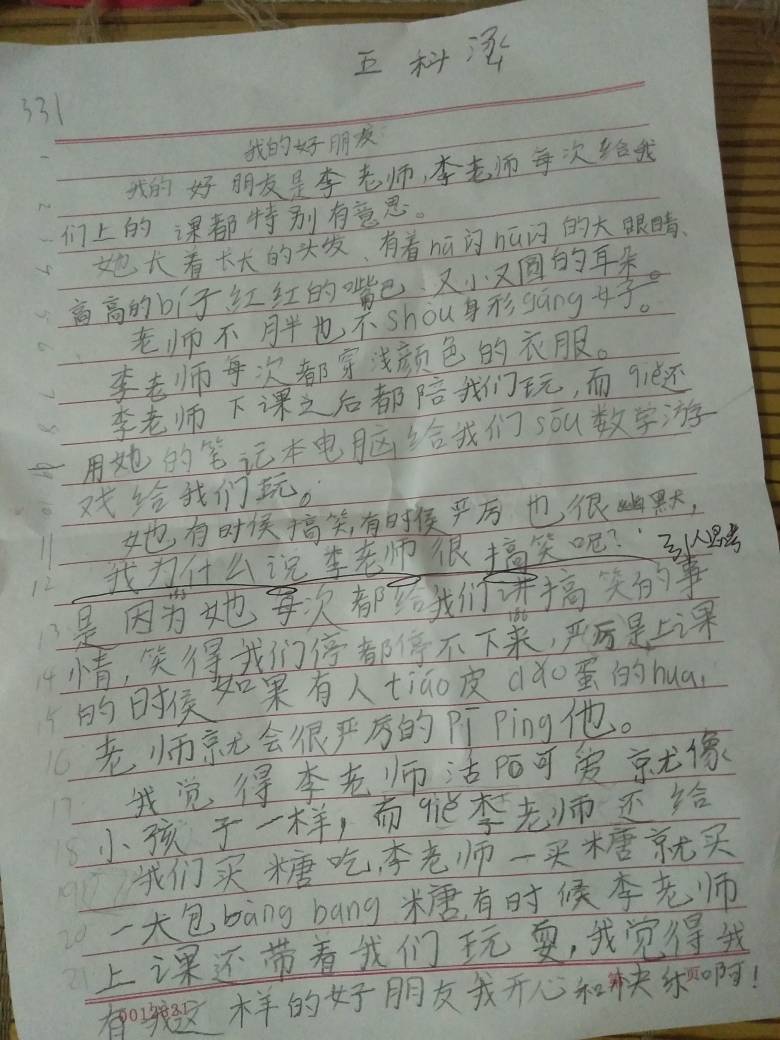 王科泽
331
我的好朋友
我的好朋友是李老师,李老师每次给我
们上的课都特别有意思。
她大着长大的头发、有着nū闪nū闪的大眼睛、
高高的bí子红红的嘴巴、又小又圆的耳朵。
老师不胖也不shòu身形gáng好子。
李老师每次都穿浅颜色的衣服。
李老师下课之后都陪我们玩,而qiě还
用她的笔记本电脑给我们sōu数学游
戏给我们玩。
她有时候搞笑,有时候严厉也很幽默,
我为什么说李老师很搞笑呢? 引人思考
是因为她每次都给我们讲搞笑的事
情,笑得我们停都停不下来,严厉是上课
的时侯如果有人tiáo皮dǎo蛋的huà,
老师就会很严厉的pī píng他。
我觉得李老师活pō可爱就像
小孩子一样,而qiě李老师还给
我们买糖吃,李老师一买糖就买
一大包bàng bang糖,有时候李老师
上课还带着我们玩耍,我觉得我
有这样的好朋友我开心和快乐啊!
0015331
第 页